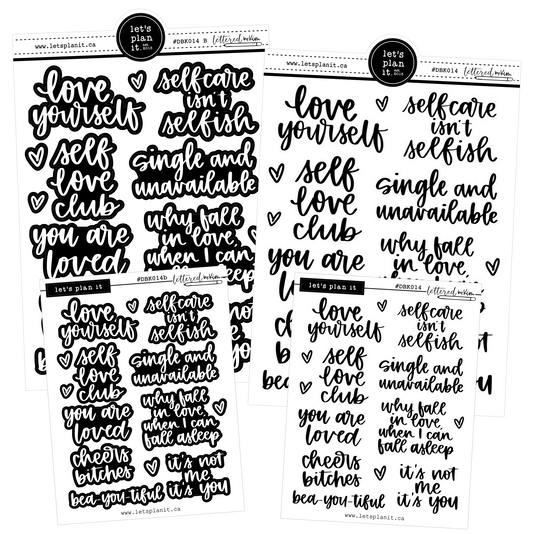 let's
plan
it.
est.
2015
www.letsplanit.ca
#DBK014 B
lettered. whim
love
yourself
selfcare
isn't
selfish
self
love
club
single and
unavailable
you are
loved
why fall
in love,
when I can
fall asleep
let's
plan
it.
est.
2015
www.letsplanit.ca
#DBK014
lettered. whim
love
yourself
selfcare
isn't
selfish
self
love
club
single and
unavailable
you are
why fall
in love,
let's plan it
#DBK014b
lettered. whim
love
yourself
selfcare
isn't
selfish
self
love
club
single and
unavailable
you are
loved
why fall
in love,
when I can
fall asleep
cheers
bitches
it's not
me
it's you
bea-you-tiful
www.letsplanit.ca
let's plan it
#DBK014
lettered. whim
love
yourself
selfcare
isn't
selfish
self
love
club
single and
unavailable
you are
loved
why fall
in love,
when I can
fall asleep
cheers
bitches
it's not
me
it's you
bea-you-tiful
www.letsplanit.ca